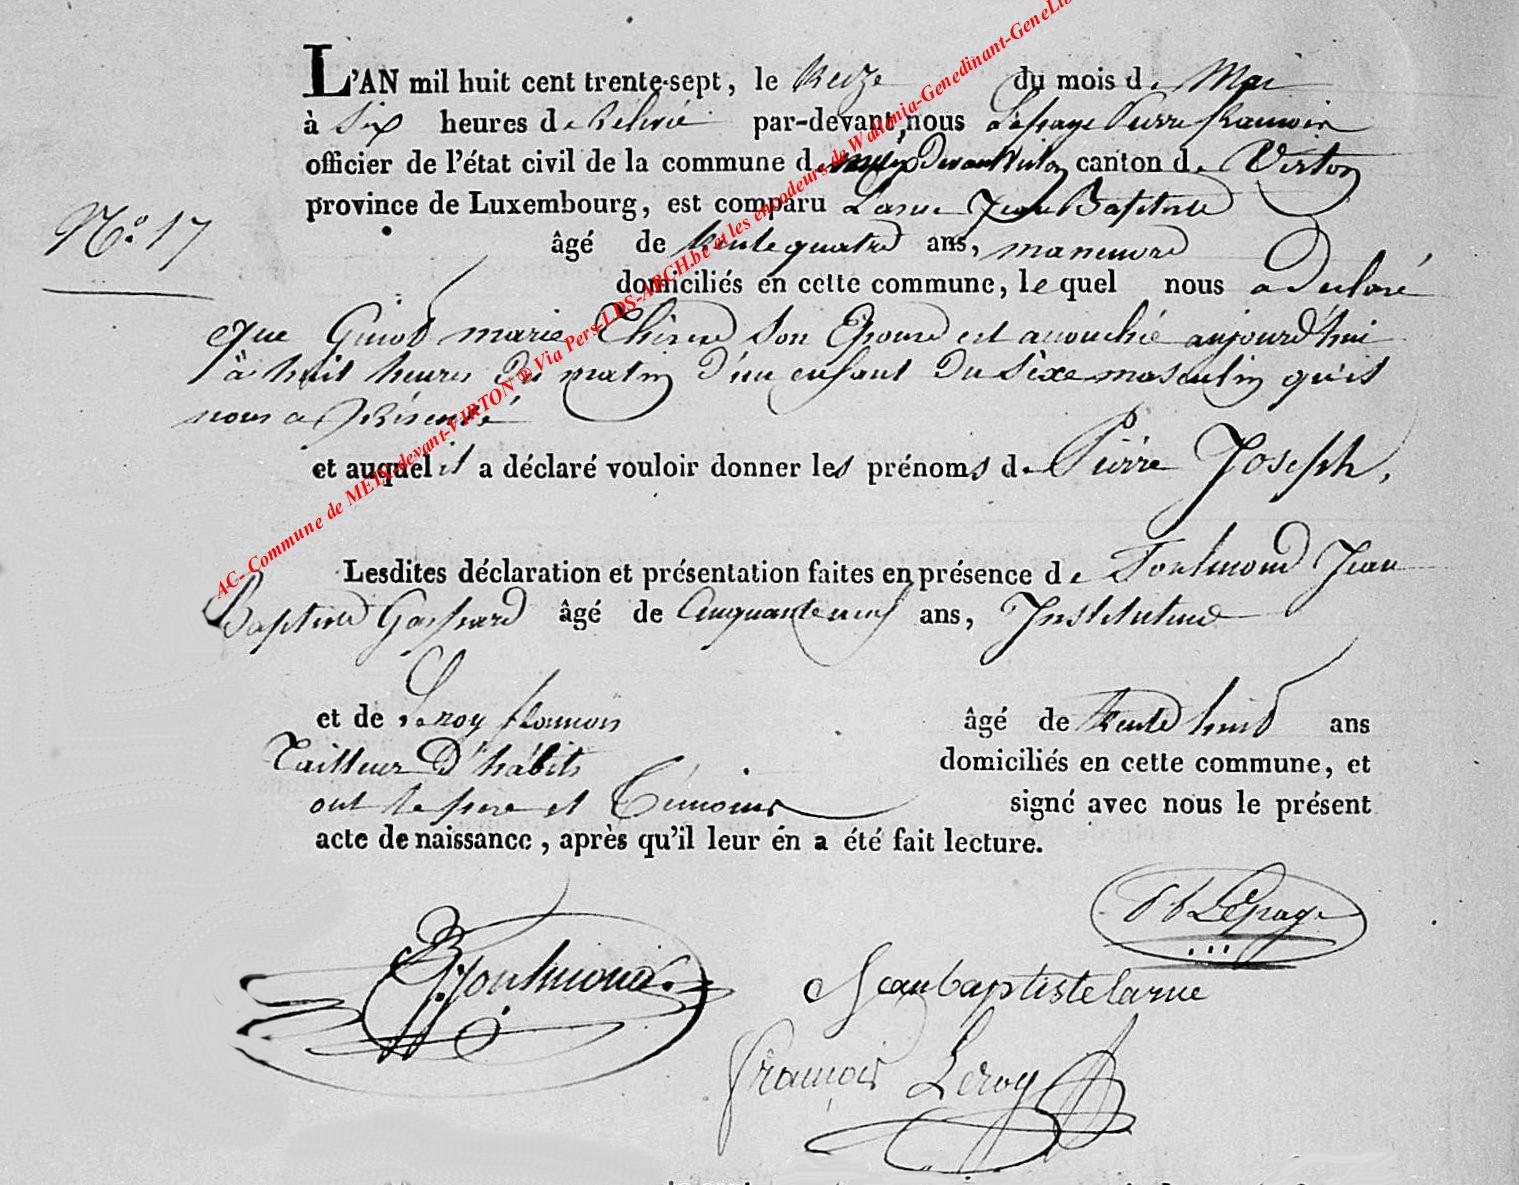 L'AN mil huit cent trente-sept, le treize du mois de Mai
à Six heures de Relevé par-devant nous Lepage Pierre françois
officier de l'état civil de la commune de meix Devant Virton canton de Virton
province de Luxembourg, est comparu Larue Jean Baptiste
N.° 17
âgé de trente quatre ans, manœuvre
domiciliés en cette commune, le quel nous a Déclaré
que Guiot marie Thérese Son Epouse est accouchée aujourd'hui
à huit heures Du matin D'un enfant Du Sèxe masculin qu'il
nous a Présenté
et auquel il a déclaré vouloir donner les prénoms de Piérre Joseph,
Lesdites déclaration et présentation faites en présence de Foulmond Jean
Baptiste Gaspard âgé de Cinquante neuf ans, Instituteur
et de Leroy françois âgé de trente huit ans
Tailleur D'habits domiciliés en cette commune, et
ont le père et Témoins signé avec nous le présent
acte de naissance, après qu'il leur en a été fait lecture.
Lepage
Foulmond
Jean baptiste larue
françois Leroy
AC- Commune de MEIX-devant-VIRTON ® Via Pers-LDS-ARCH.be et les encodeurs de Wallonia-Genedinant-GeneLi